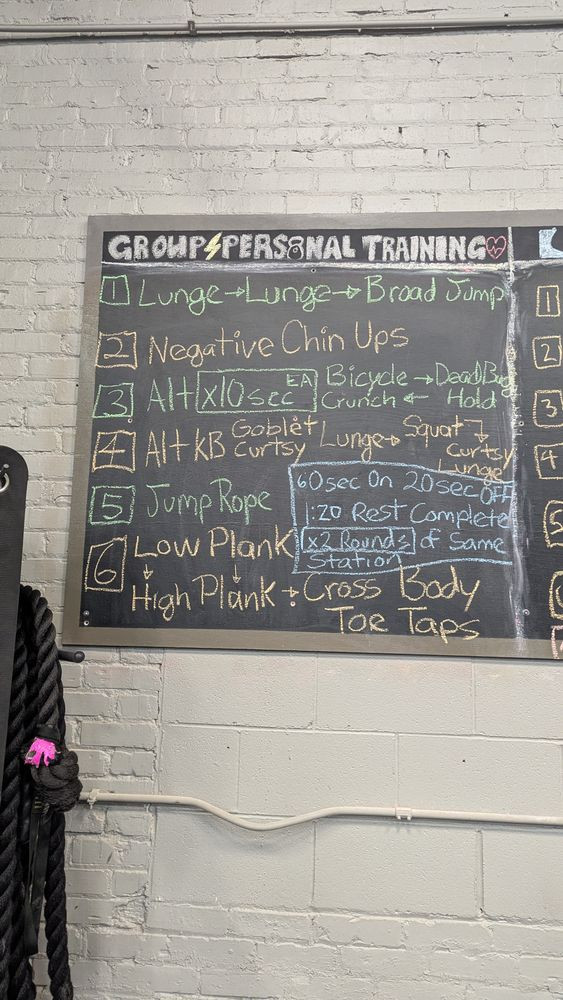 GROUP⚡PERSONAL TRAINING
1 Lunge → Lunge → Broad Jump
2 Negative Chin Ups
3 Alt x10sec EA Bicycle → Dead Bug
Crunch ← Hold
4 Alt KB Goblet Curtsy Lunge → Squat
Curtsy
Lunge
5 Jump Rope
60sec On 20sec Off
1:20 Rest Complete
x2 Rounds of Same
Station
6 Low Plank
↓ ↓
High Plank → Cross Body
Toe Taps
1
2
3
4
5